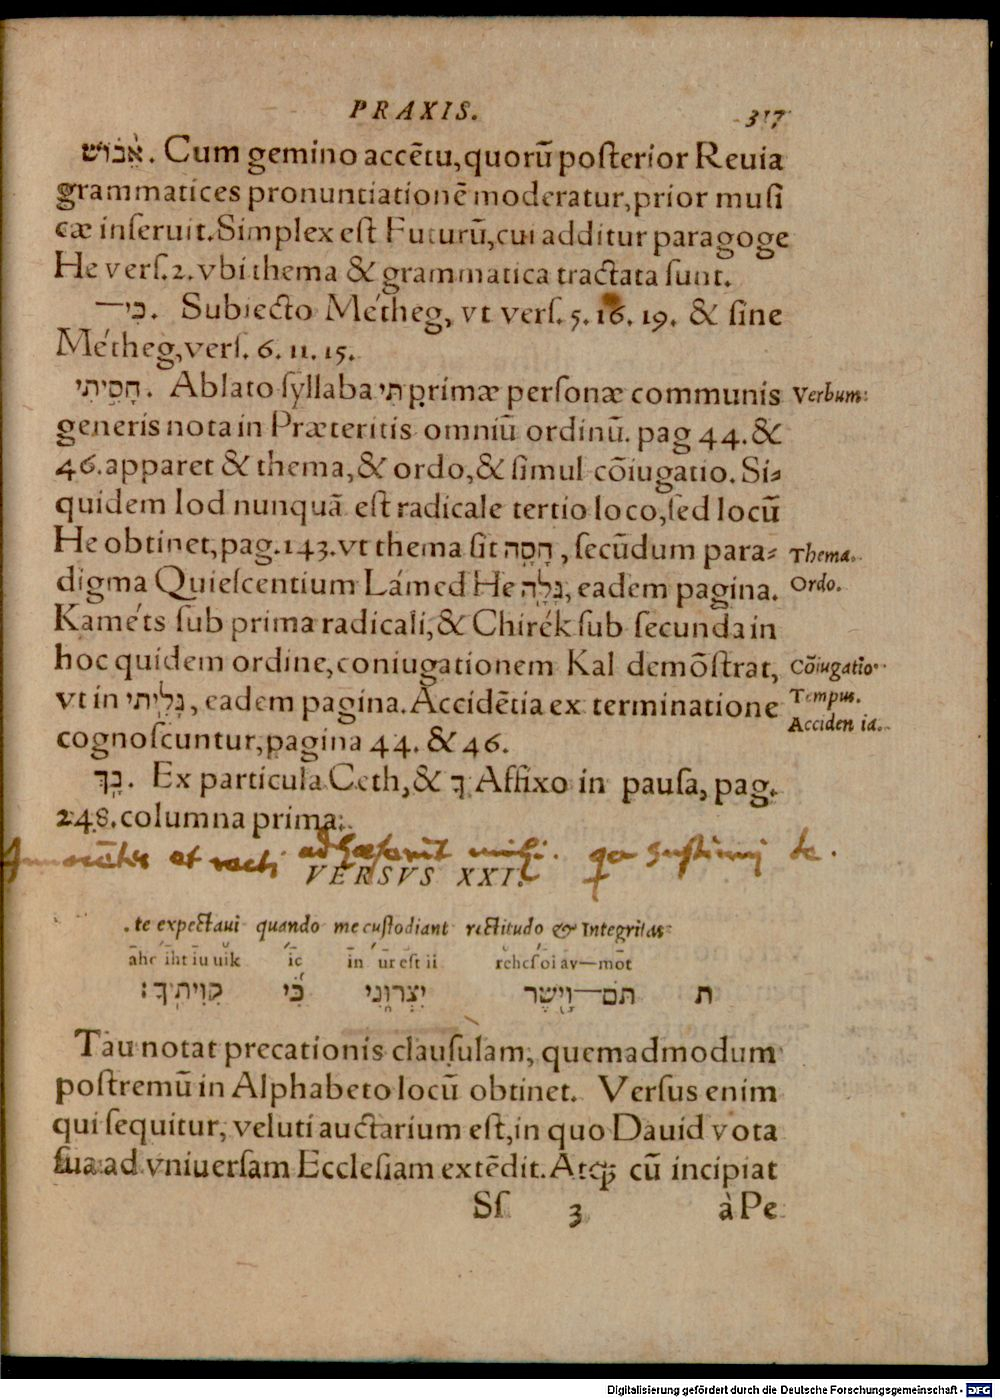 PRAXIS. 317
אֵ֫ב֗וֹשׁ. Cum gemino accẽtu, quorũ posterior Reuia
grammatices pronuntiationẽ moderatur, prior musi
cæ inseruit. Simplex est Futurũ, cui additur paragoge
He vers. 2. vbi thema & grammatica tractata sunt.
כִּי—. Subiecto Métheg, vt vers. 5. 16. 19. & sine
Métheg, vers. 6. 11. 15.
חָסִיתִי. Ablato syllaba תִי primæ personæ communis Verbum:
generis nota in Præteritis omniũ ordinũ. pag 44. &
46. apparet & thema, & ordo, & simul cõiugatio. Si⸗
quidem Iod nunquã est radicale tertio loco, sed locũ
He obtinet, pag. 143. vt thema sit חָסָה, secũdum para⸗ Thema.
digma Quiescentium Lámed He גָלָה, eadem pagina. Ordo.
Kaméts sub prima radicali, & Chirék sub secunda in
hoc quidem ordine, coniugationem Kal demõstrat, Cõiugatio.
vt in גָלִיתי, eadem pagina. Accidẽtia ex terminatione Tempus.
cognoscuntur, pagina 44. & 46. Acciden ia.
בָךְ. Ex particula Ceth, & ךְ Affixo in pausa, pag.
248. columna prima.
Innocẽtes et recti adhæserũt mihi. qa sustinui te.
VERSVS XXI.
. te expectaui quando me custodiant rectitudo & Integritas
ahc iht iu uik ic in ur est ii rehcs oi av—mot
ת תֹּם—וָיֹשֶׁר יִצְּרוּנִי כִּי קִוִּיתִיךָ:
Tau notat precationis clausulam, quemadmodum
postremũ in Alphabeto locũ obtinet. Versus enim
qui sequitur, veluti auctarium est, in quo Dauid vota
sua ad vniuersam Ecclesiam extẽdit. Atq; cũ incipiat
Ss 3 à Pe
Digitalisierung gefördert durch die Deutsche Forschungsgemeinschaft - DFG